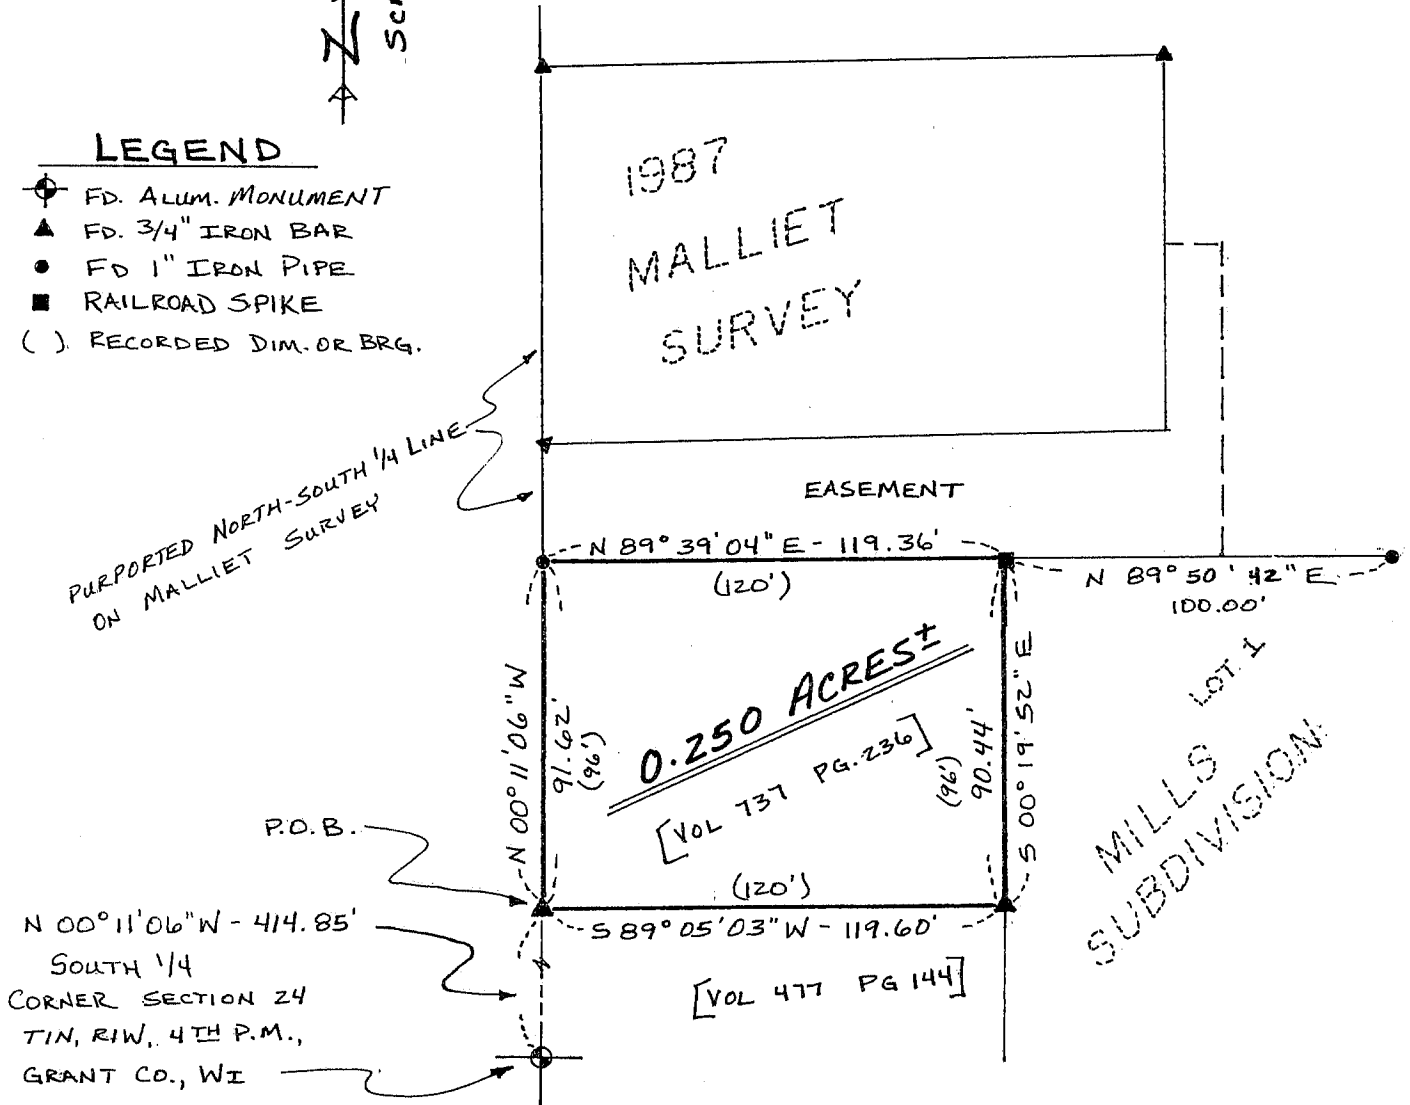 N
LEGEND
FD. ALUM. MONUMENT
FD. 3/4" IRON BAR
FD 1" IRON PIPE
RAILROAD SPIKE
( ). RECORDED DIM. OR BRG.
1987
MALLIET
SURVEY
PURPORTED NORTH-SOUTH 1/4 LINE
ON MALLIET SURVEY
EASEMENT
N 89° 39' 04" E - 119.36'
(120')
N 89° 50' 42" E
100.00'
N 00° 11' 06" W
91.62'
(96')
0.250 ACRES±
[VOL 737 PG. 236]
(96')
90.44'
S 00° 19' 52" E
LOT. 1
MILLS
SUBDIVISION
P.O.B.
(120')
S 89° 05' 03" W - 119.60'
[VOL 477 PG 144]
N 00° 11' 06" W - 414.85'
SOUTH 1/4
CORNER SECTION 24
T1N, R1W, 4TH P.M.,
GRANT CO., WI